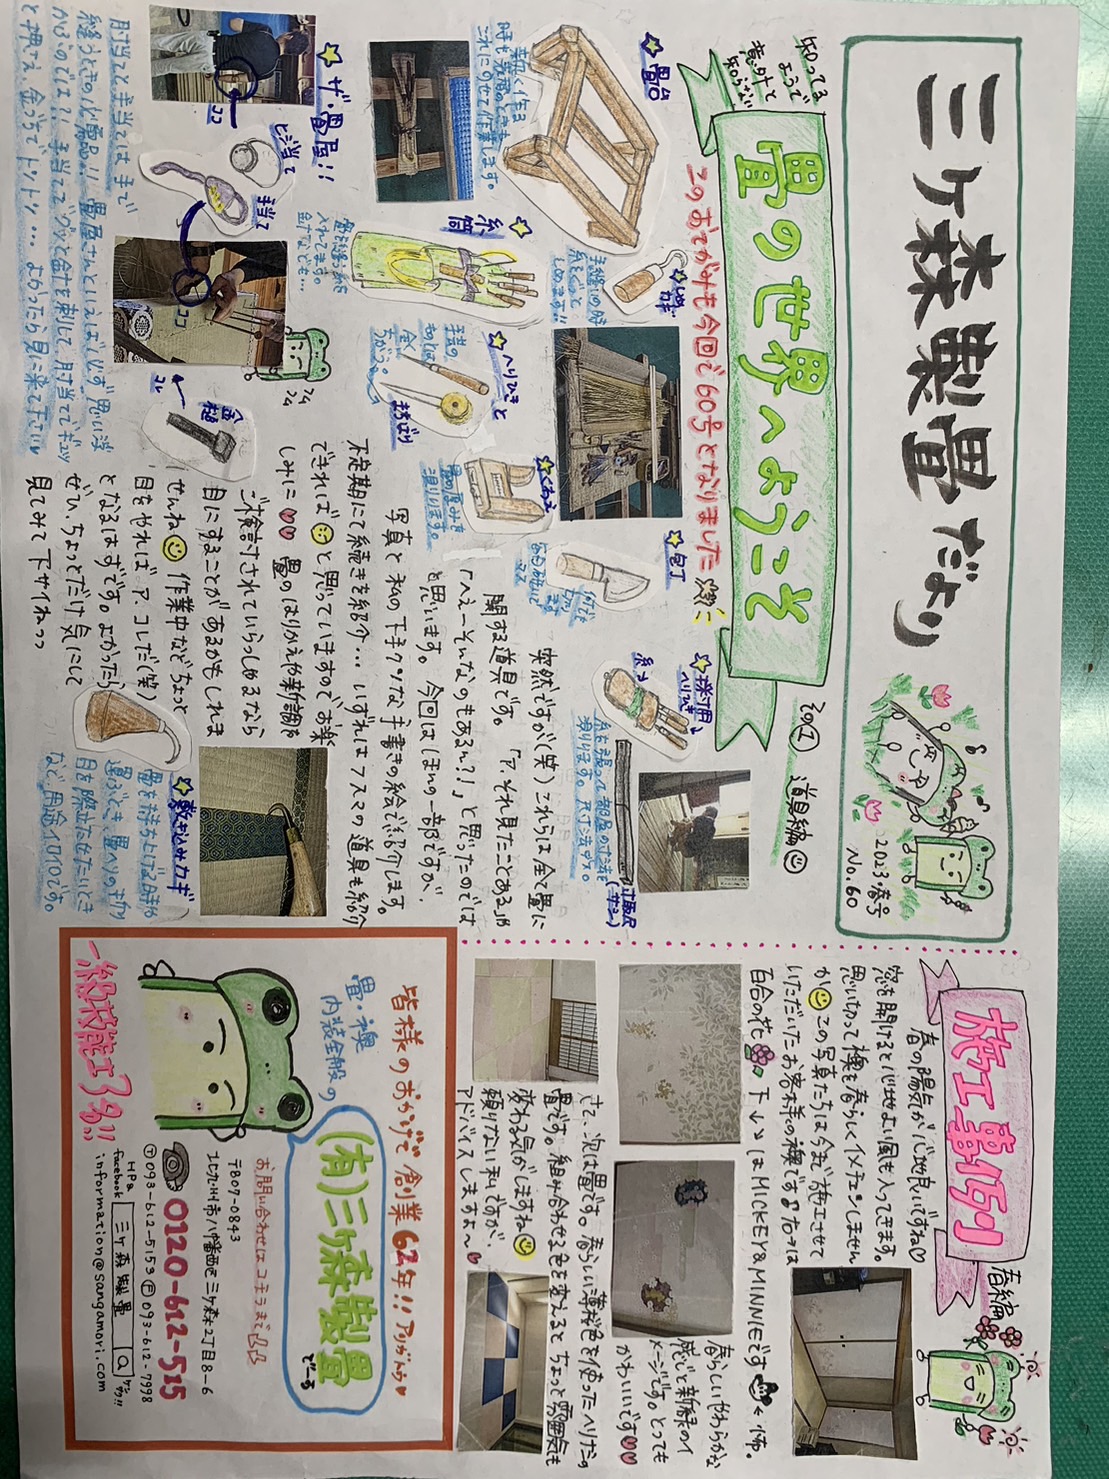 三ケ森製畳だより
2023・春号
No.60
知ってる
ようで
意外と
知らない
畳の世界へようこそ
その1 道具編
このおてがみも今回で60号となりました
☆畳台
新しく作る
時も、
これにのせて作業します。
☆包丁
☆糸筒
☆へりひきと
まちばり
☆ザ・畳屋!!
ココ
ヒジ当て
手当て
ココ
コレ
肘当てと手当ては手で
縫うときの必需品!! 畳屋さんといえばですぐ思い浮
かぶのでは?! 手当てでグッと針を刺して、肘当てでギュッ
と押さえ、金づちでトントン… よかったら見に来て下さい
突然ですが(笑) これらは全て畳に
関する道具です。「ア、それ見たことある」
「へえーそんなのもあるん?!」と思ったのでは
と思います。今回はほんの一部ですが、
写真と私の下手クソな手書きの絵で紹介します。
不定期にて続きを紹介… いずれはフスマの道具も紹介
できれば と思っていますのでお楽
しみに♡♡ 畳のはりかえや新調を
ご検討されていらっしゃるなら
目にすることがあるかもしれま
せんね 作業中などちょっと
目をやれば ア、コレだ(笑)
となるはずです。よかったら
ぜひ、ちょっとだけ気にして
見てみて下サイねっっ
☆敷き込みカギ
畳を持ち上げる時や
運ぶとき、畳へりの
目を際立たせたいとき
など、用途イロイロです。
施工事例
春編
春の陽気が心地良いですね♡
窓を開けると心地よい風も入ってきます。
思い切って襖を春らしくイメチェンしません
か この写真たちは今まで施工させて
いただいたお客様の襖です たて2は
百合の花 下↓↘はMICKEY&MINNIEです
春らしいやわらかな
感じと新緑のイ
メージです。とっても
かわいいです♡♡
さて、次は畳です。春らしい薄桜色を使ったへりなしの
畳です。組み合わせる色を変えると ちょっと雰囲気も
変わる気がしますね
頼りない私ですが、
アドバイスしますよ〜♡
皆様のおかげで創業62年!! アリがとう♡
畳・襖
内装全般の
(有)三ケ森製畳
でーす
一級技能士3名!!
お問い合わせはコチラまで
〒807-0843
北九州市八幡西区三ケ森2丁目8-6
0120-612-515
Ⓣ093-612-5153 Ⓕ093-612-7998
HPと
facebook
三ケ森製畳
information@sangamori.com